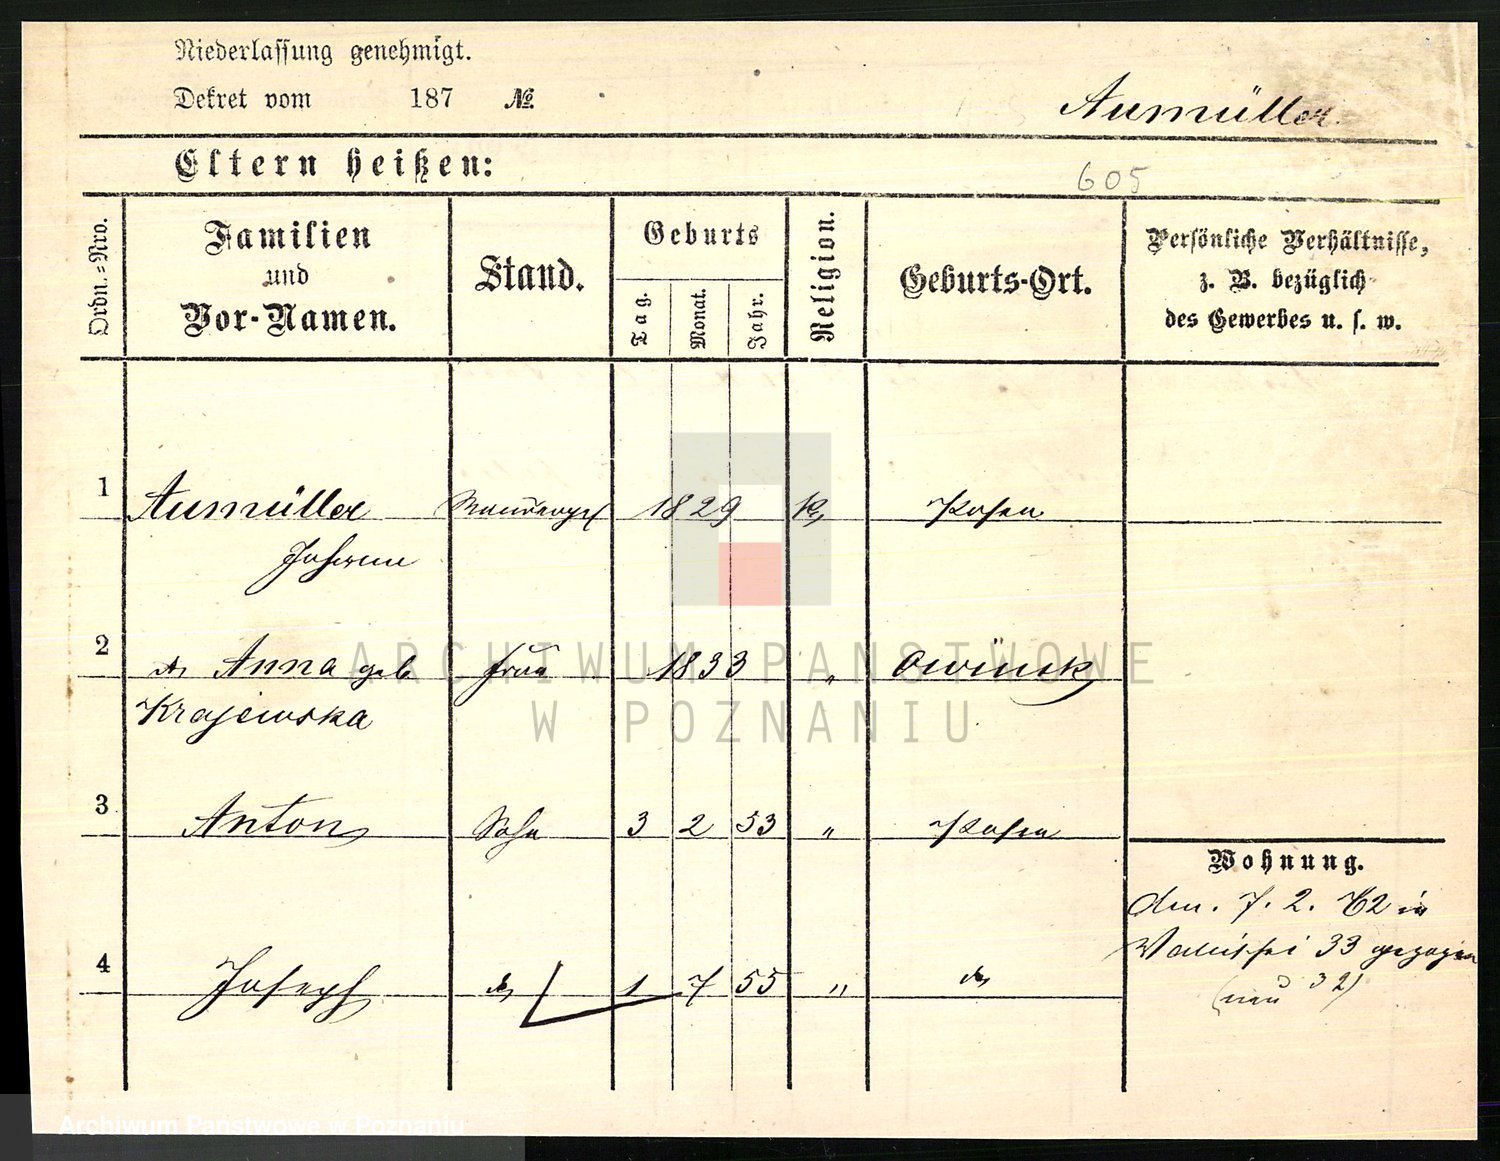 Niederlassung genehmigt.
Dekret vom 187 №
Aumüller
Eltern heißen:
605
Ordn.-Nro.
Familien und Vor-Namen.
Stand.
Geburts
Tag.
Monat.
Jahr.
Religion.
Geburts-Ort.
Persönliche Verhältnisse,
z. B. bezüglich
des Gewerbes u. s. w.
1 Aumüller 1829 K Posen
Johann
2 Anna geb Frau 1833 "
Krajewska
3 Anton Sohn 3 2 53 " Posen
Wohnung.
7. 2. 62 in
33 gezogen
(neu 32)
4 Joseph do 1 7 55 " do
ARCHIWUM PAŃSTWOWE
W POZNANIU
Archiwum Państwowe w Poznaniu